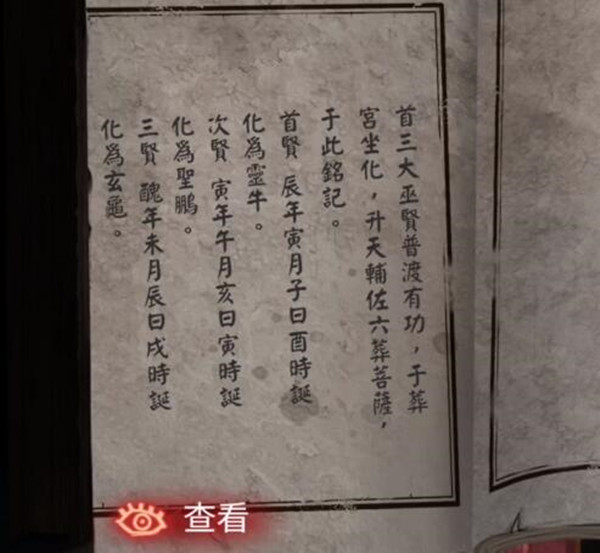 首三大巫賢普渡有功，于葬
宮坐化，升天輔佐六葬菩薩，
于此銘記。
首賢 辰年寅月子曰酉時誕
化為靈牛。
次賢 寅年午月亥曰寅時誕
化為聖鵬。
三賢 醜年未月辰曰戌時誕
化為玄龜。
查看